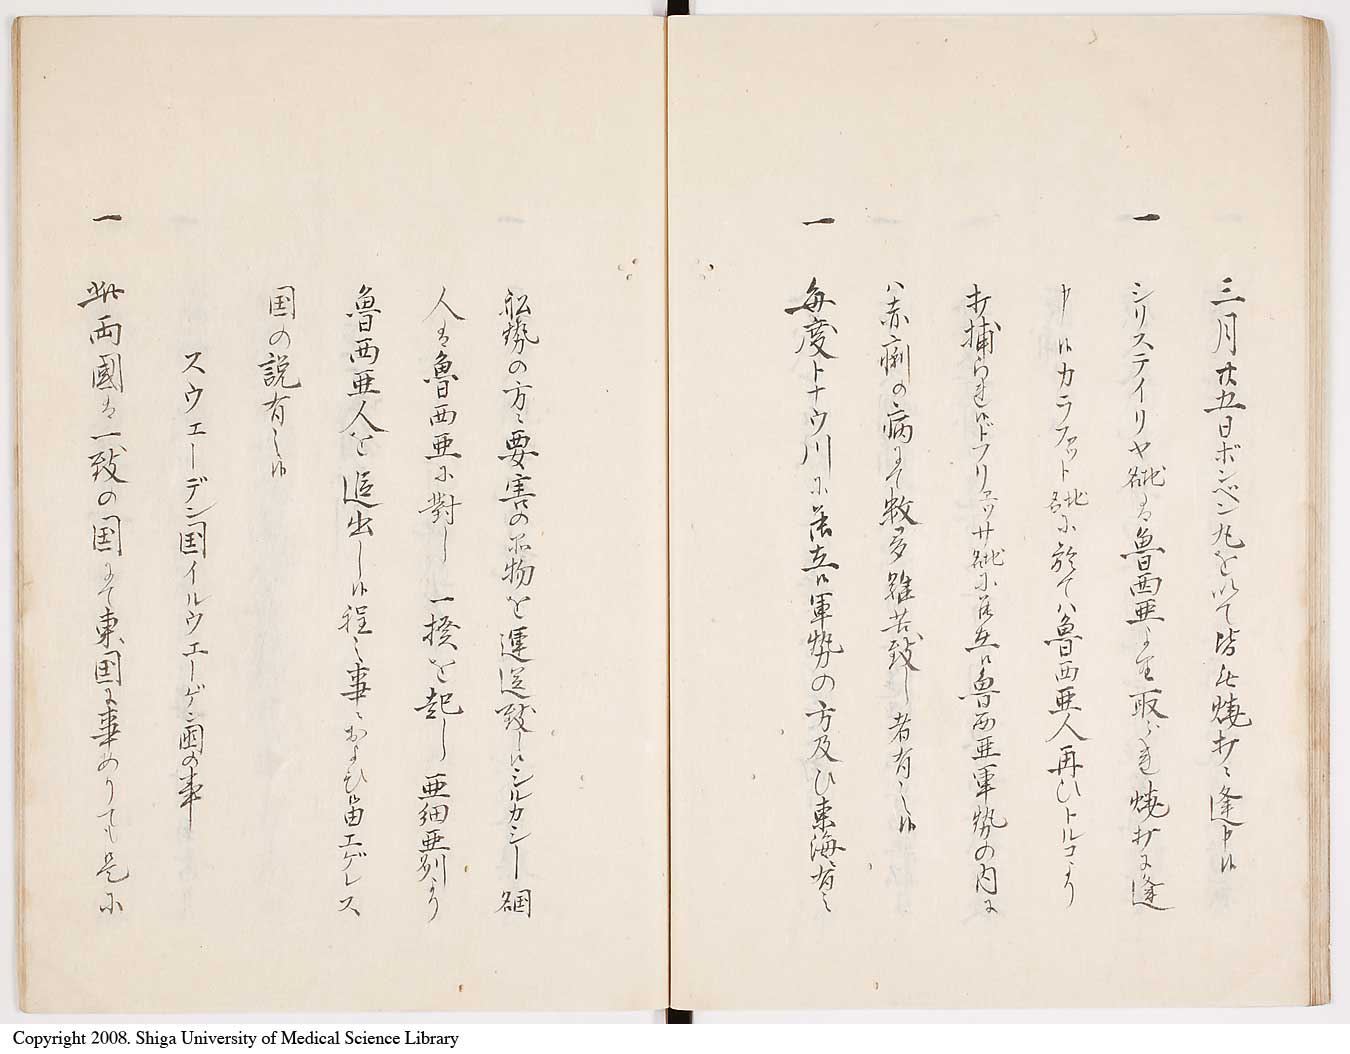 三月廿五日ボンベン丸を以て皆々焼打ニ逢申候
一 シリステイリヤ地名は魯西亜より被取焼打に逢
申候カラファット地名に於てハ魯西亜人再ひトルコより
打捕られ候ドブリュッサ地名に居立候魯西亜軍勢の内に
ハ赤痢の病にて数多難苦致し者有之候
一 毎度トナウ川に居立候軍勢の方及ひ東海ニ有之
船勢の方ニ要害の品物を運送致しシルカシー国名
人は魯西亜に對し一揆を起し亜細亜列より
魯西亜人を追出し候程之事ニおよひ候由エゲレス
国の説有之候
スウェーデン国イルウエーゲン国の事
一 此両國は一致の国にて東国に事ありても是に
Copyright 2008. Shiga University of Medical Science Library